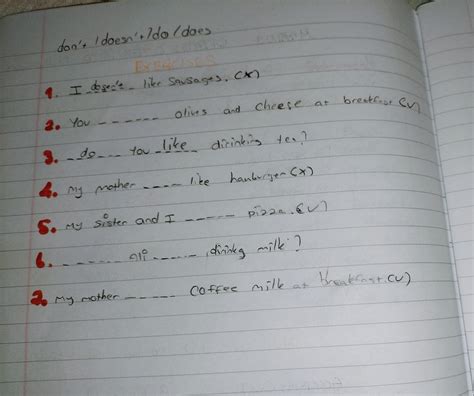 don't / doesn't / do / does
EXERCISES
1. I doesn't like sausages. (X)
2. You ------ olives and cheese at breakfast (V)
3. do you like dirinking tea?
4. My mother ---- like hamburger (X)
5. My sister and I ----- pizza. (V)
6. ------ Ali ----- drinkg milk?
7. My mother ----- coffee milk at breakfast. (V)